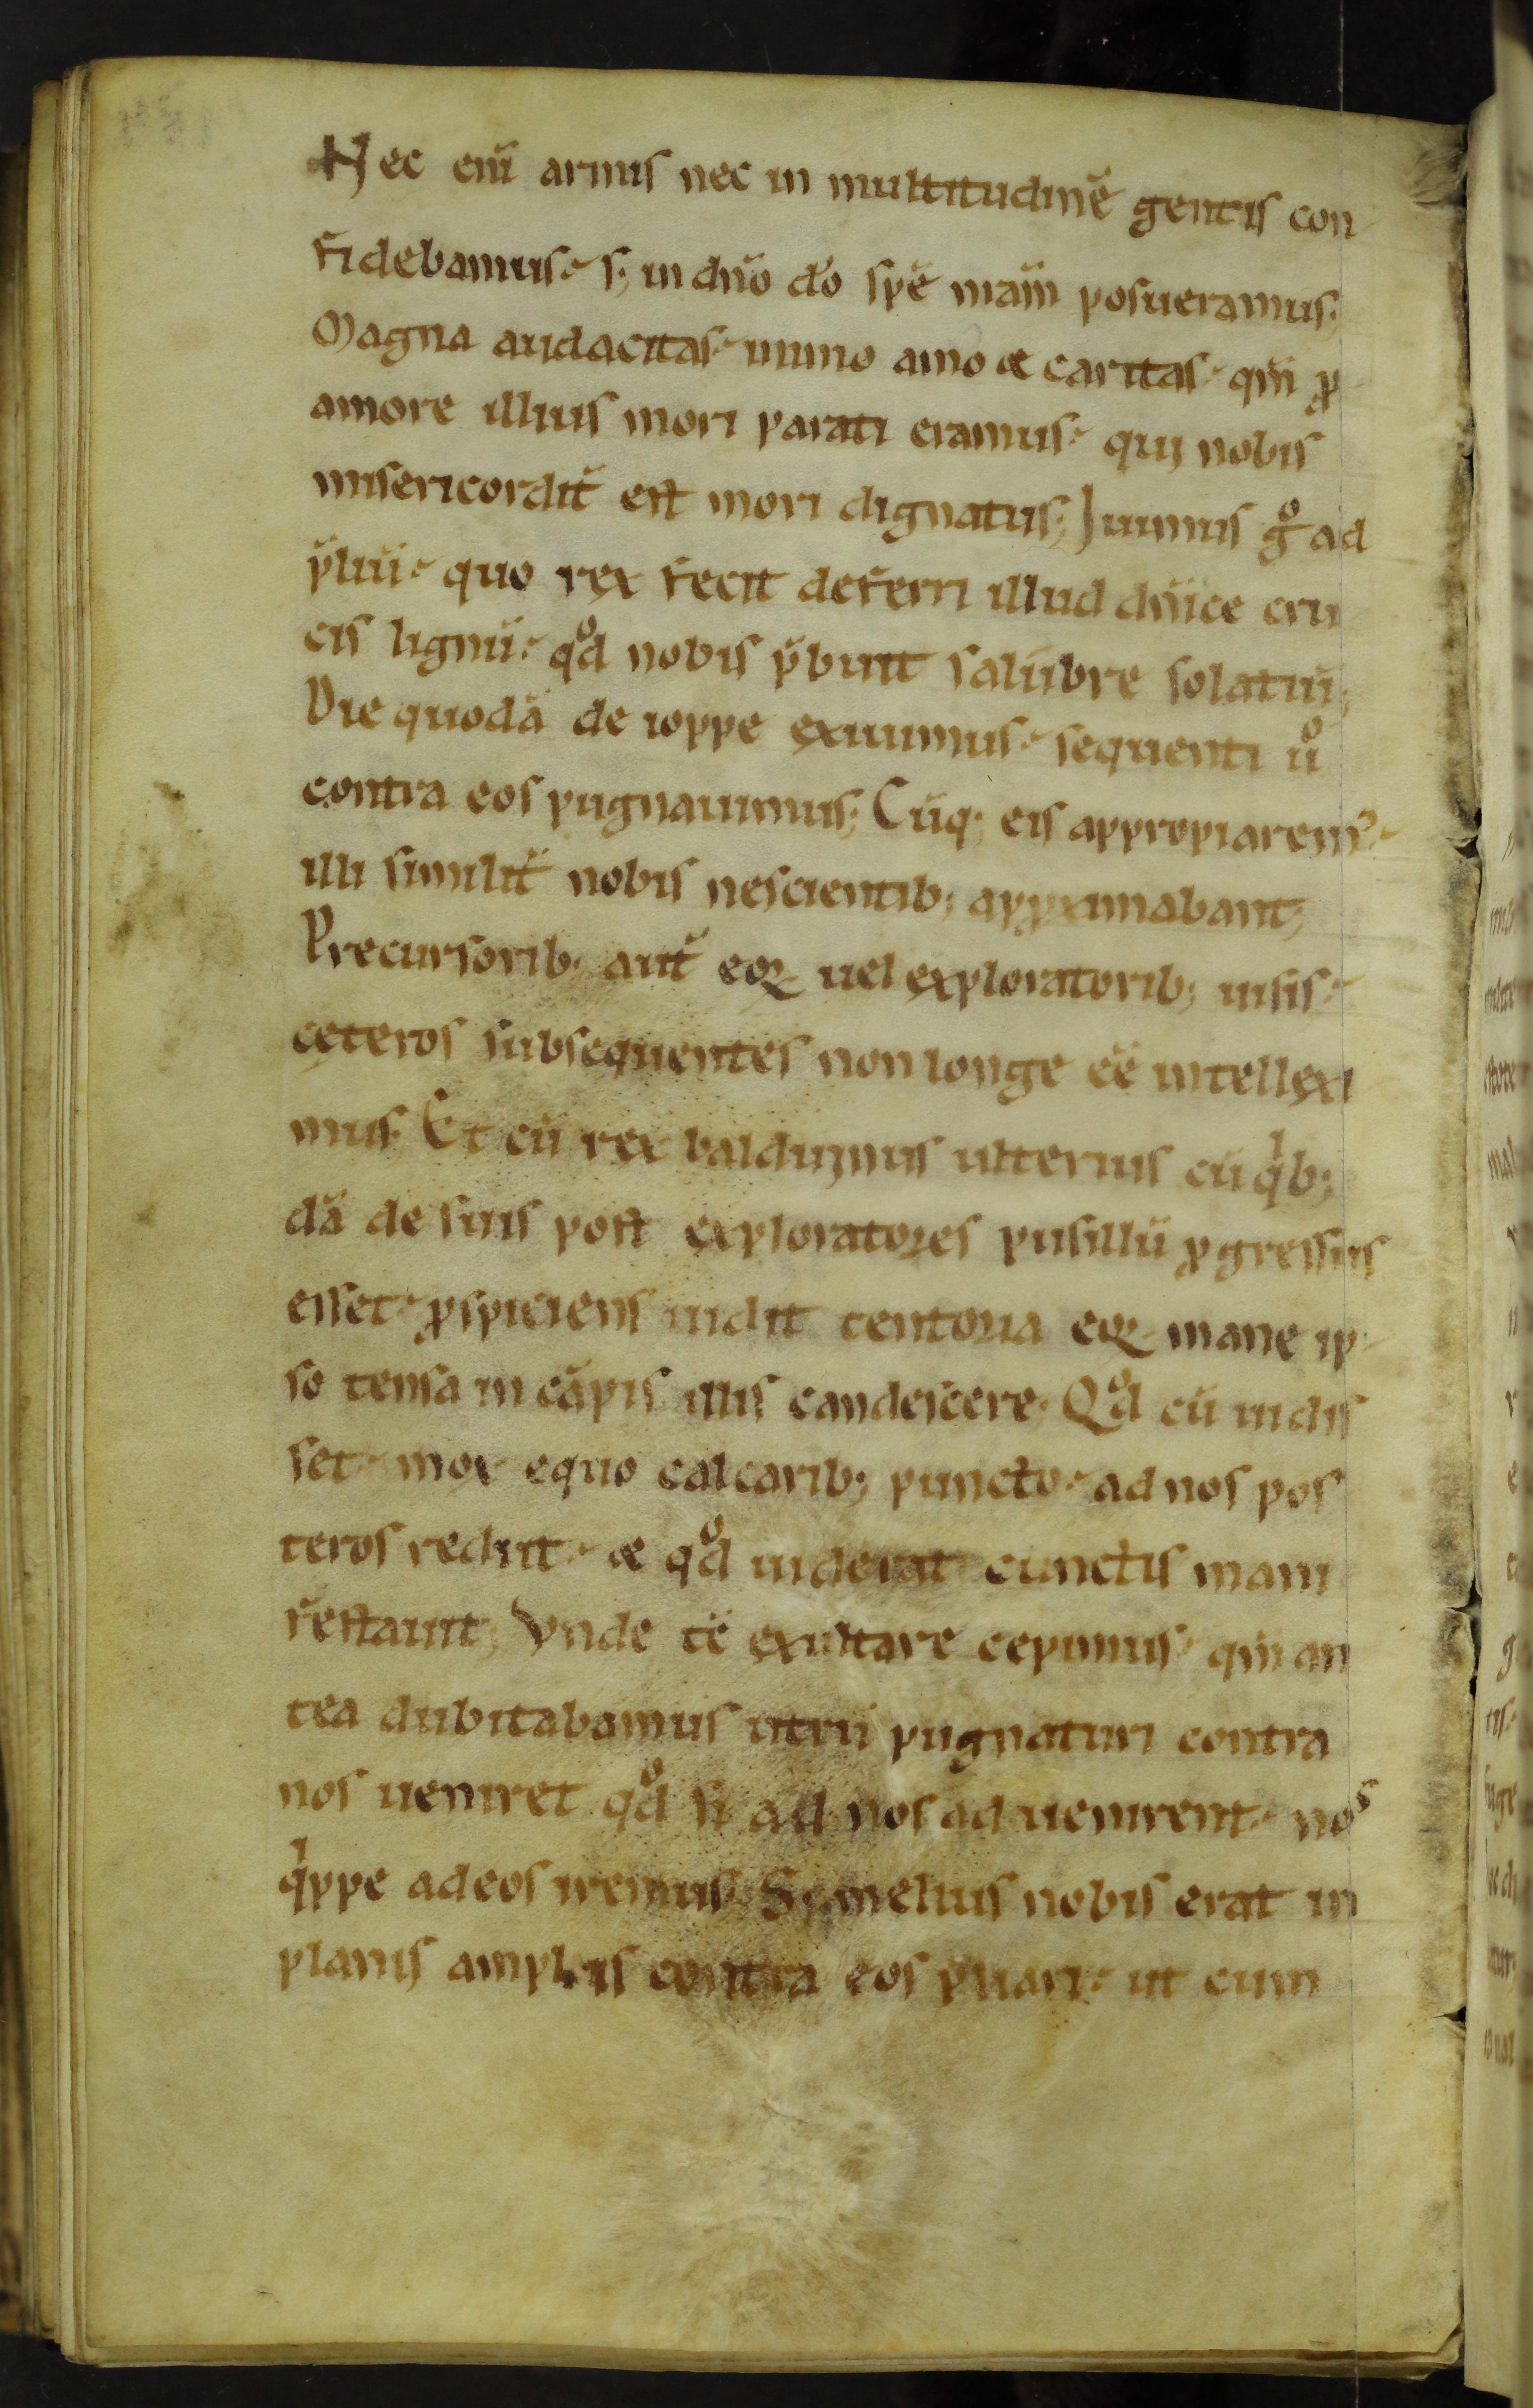 Nec eni᷑ armis nec in multitudine᷑ gentis con
fidebamus. s; in dn̄o dō spē nr̄am posueramus;
Magna audacitas. immo amo & caritas. qm̄ ꝓ
amore illius mori parati eramus. qui nobis
misericordit̄ est mori dignatus; Iuimus gͦ ad
p̄liū. quo rex fecit deferri illud dn̄ice cru
cis lignū. qͦd nobis p̄buit salubre solatiū;
Die quodā de ioppe exiuimus. sequenti uͦ
contra eos pugnauimus; Cūq; eis appropiarem᷒.
illi similit̄ nobis nescientib; apꝓximabant;
Precursorib; aut̄ eoꝝ uel exploratorib; uisis.
ceteros subsequentes non longe eē intellexi
mus. Et cū rex balduinus ulterius cū qⁱb;
dā de suis post exploratores pusillū ꝓgressus
esset. ꝓspiciens uidit tentoria eoꝝ mane ip
so tensa in cāpis illis candescere. Qͦd cū uidis
set. mox equo calcarib; puncto. ad nos pos
teros rediit. & qͦd uiderat cunctis mani
festauit; Vnde tc̄ exultare cepimus. qm̄ an
tea dubitabamus utrū pugnaturi contra
nos ueniret qͦd si ad nos aduenirent. nos
qⁱppe ad eos iremus. S; melius nobis erat in
planis amplis contra eos p̄liari. ut cum